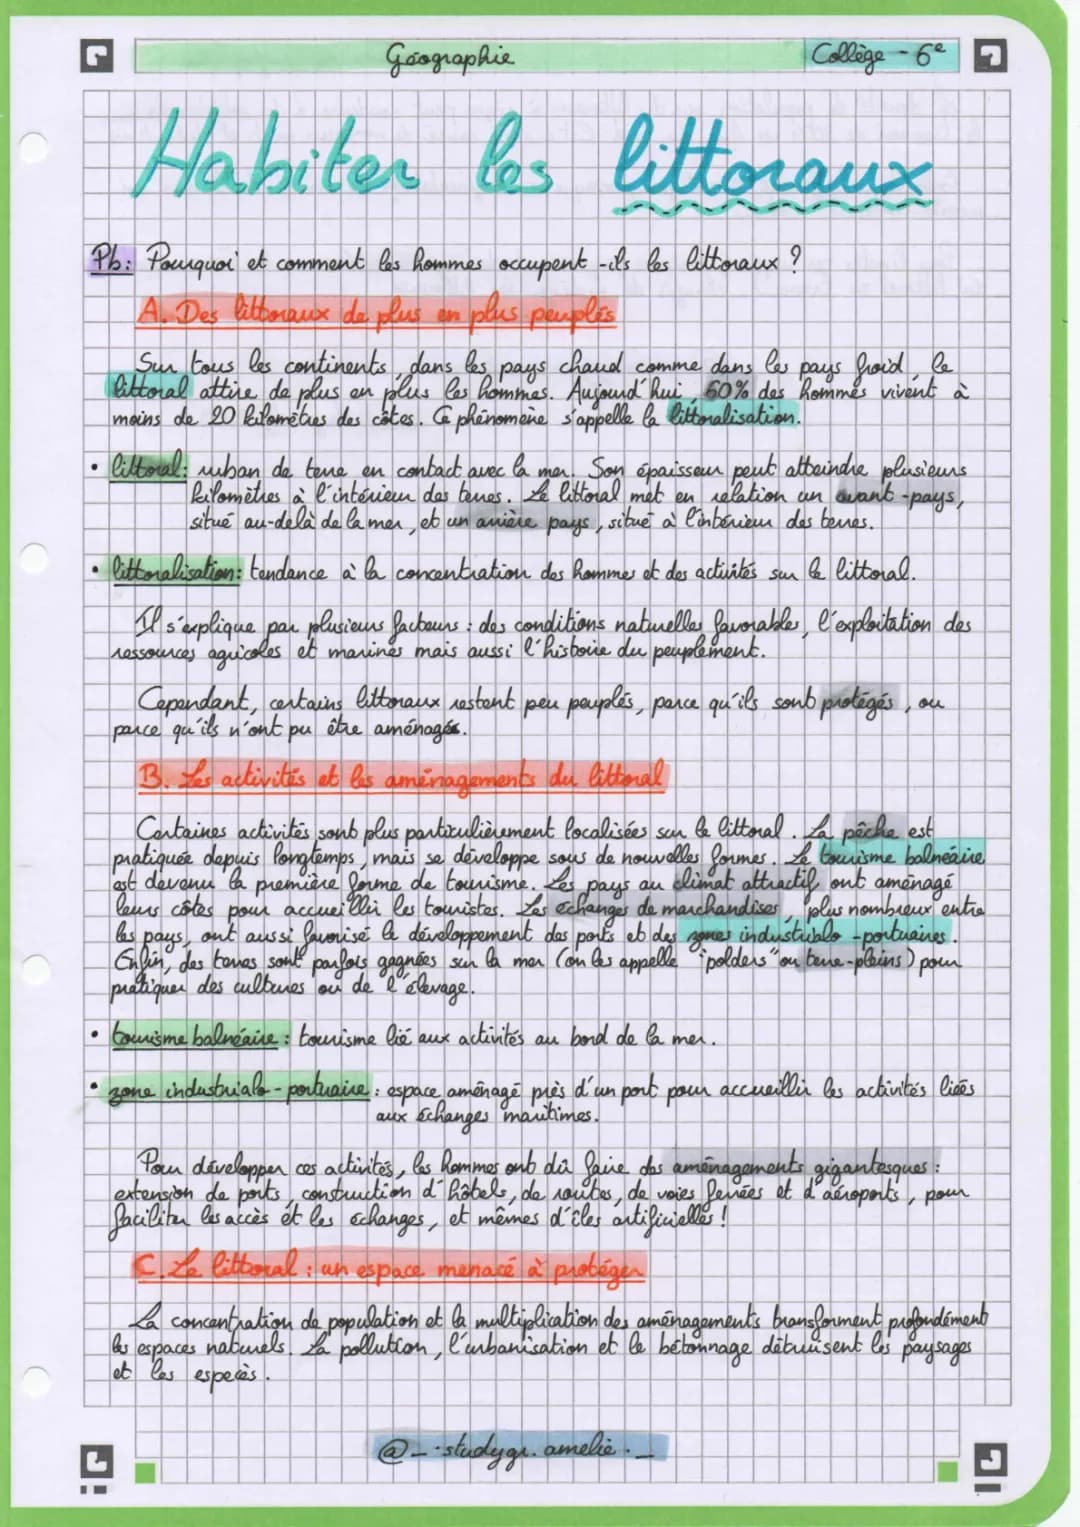 Géographie
Collège - 6e
Habiter les littoraux
Pb: Pourquoi et comment les hommes occupent-ils les littoraux ?
A. Des littoraux de plus en plus peuplés
Sur tous les continents, dans les pays chaud comme dans les pays froid, le
littoral attire de plus en plus les hommes. Aujourd'hui, 60% des hommes vivent à
moins de 20 kilomètres des côtes. Ce phénomène s'appelle la littoralisation.
• littoral: ruban de terre en contact avec la mer. Son épaisseur peut atteindre plusieurs
kilomètres à l'intérieur des terres. Le littoral met en relation un avant-pays,
situé au-delà de la mer, et un arrière pays, situé à l'intérieur des terres.
• littoralisation: tendance à la concentration des hommes et des activités sur le littoral.
Il s'explique par plusieurs facteurs : des conditions naturelles favorables, l'exploitation des
ressources agricoles et marines mais aussi l'histoire du peuplement.
Cependant, certains littoraux restent peu peuplés, parce qu'ils sont protégés, ou
parce qu'ils n'ont pu être aménagés.
B. Les activités et les aménagements du littoral
Certaines activités sont plus particulièrement localisées sur le littoral. La pêche est
pratiquée depuis longtemps, mais se développe sous de nouvelles formes. Le tourisme balnéaire
est devenu la première forme de tourisme. Les pays au climat attractif ont aménagé
leurs côtes pour accueillir les touristes. Les échanges de marchandises, plus nombreux entre
les pays, ont aussi favorisé le développement des ports et des zones industrialo-portuaires.
Enfin, des terres sont parfois gagnées sur la mer (on les appelle "polders" ou terre-pleins) pour
pratiquer des cultures ou de l'élevage.
• tourisme balnéaire : tourisme lié aux activités au bord de la mer.
• zone industrialo-portuaire : espace aménagé près d'un port pour accueillir les activités liées
aux échanges maritimes.
Pour développer ces activités, les hommes ont dû faire des aménagements gigantesques :
extension de ports, construction d'hôtels, de routes, de voies ferrées et d'aéroports, pour
faciliter les accès et les échanges, et mêmes d'îles artificielles !
C. Le littoral : un espace menacé à protéger
La concentration de population et la multiplication des aménagements transforment profondément
les espaces naturels. La pollution, l'urbanisation et le bétonnage détruisent les paysages
et les espècès.
@_.studygr.amelie._